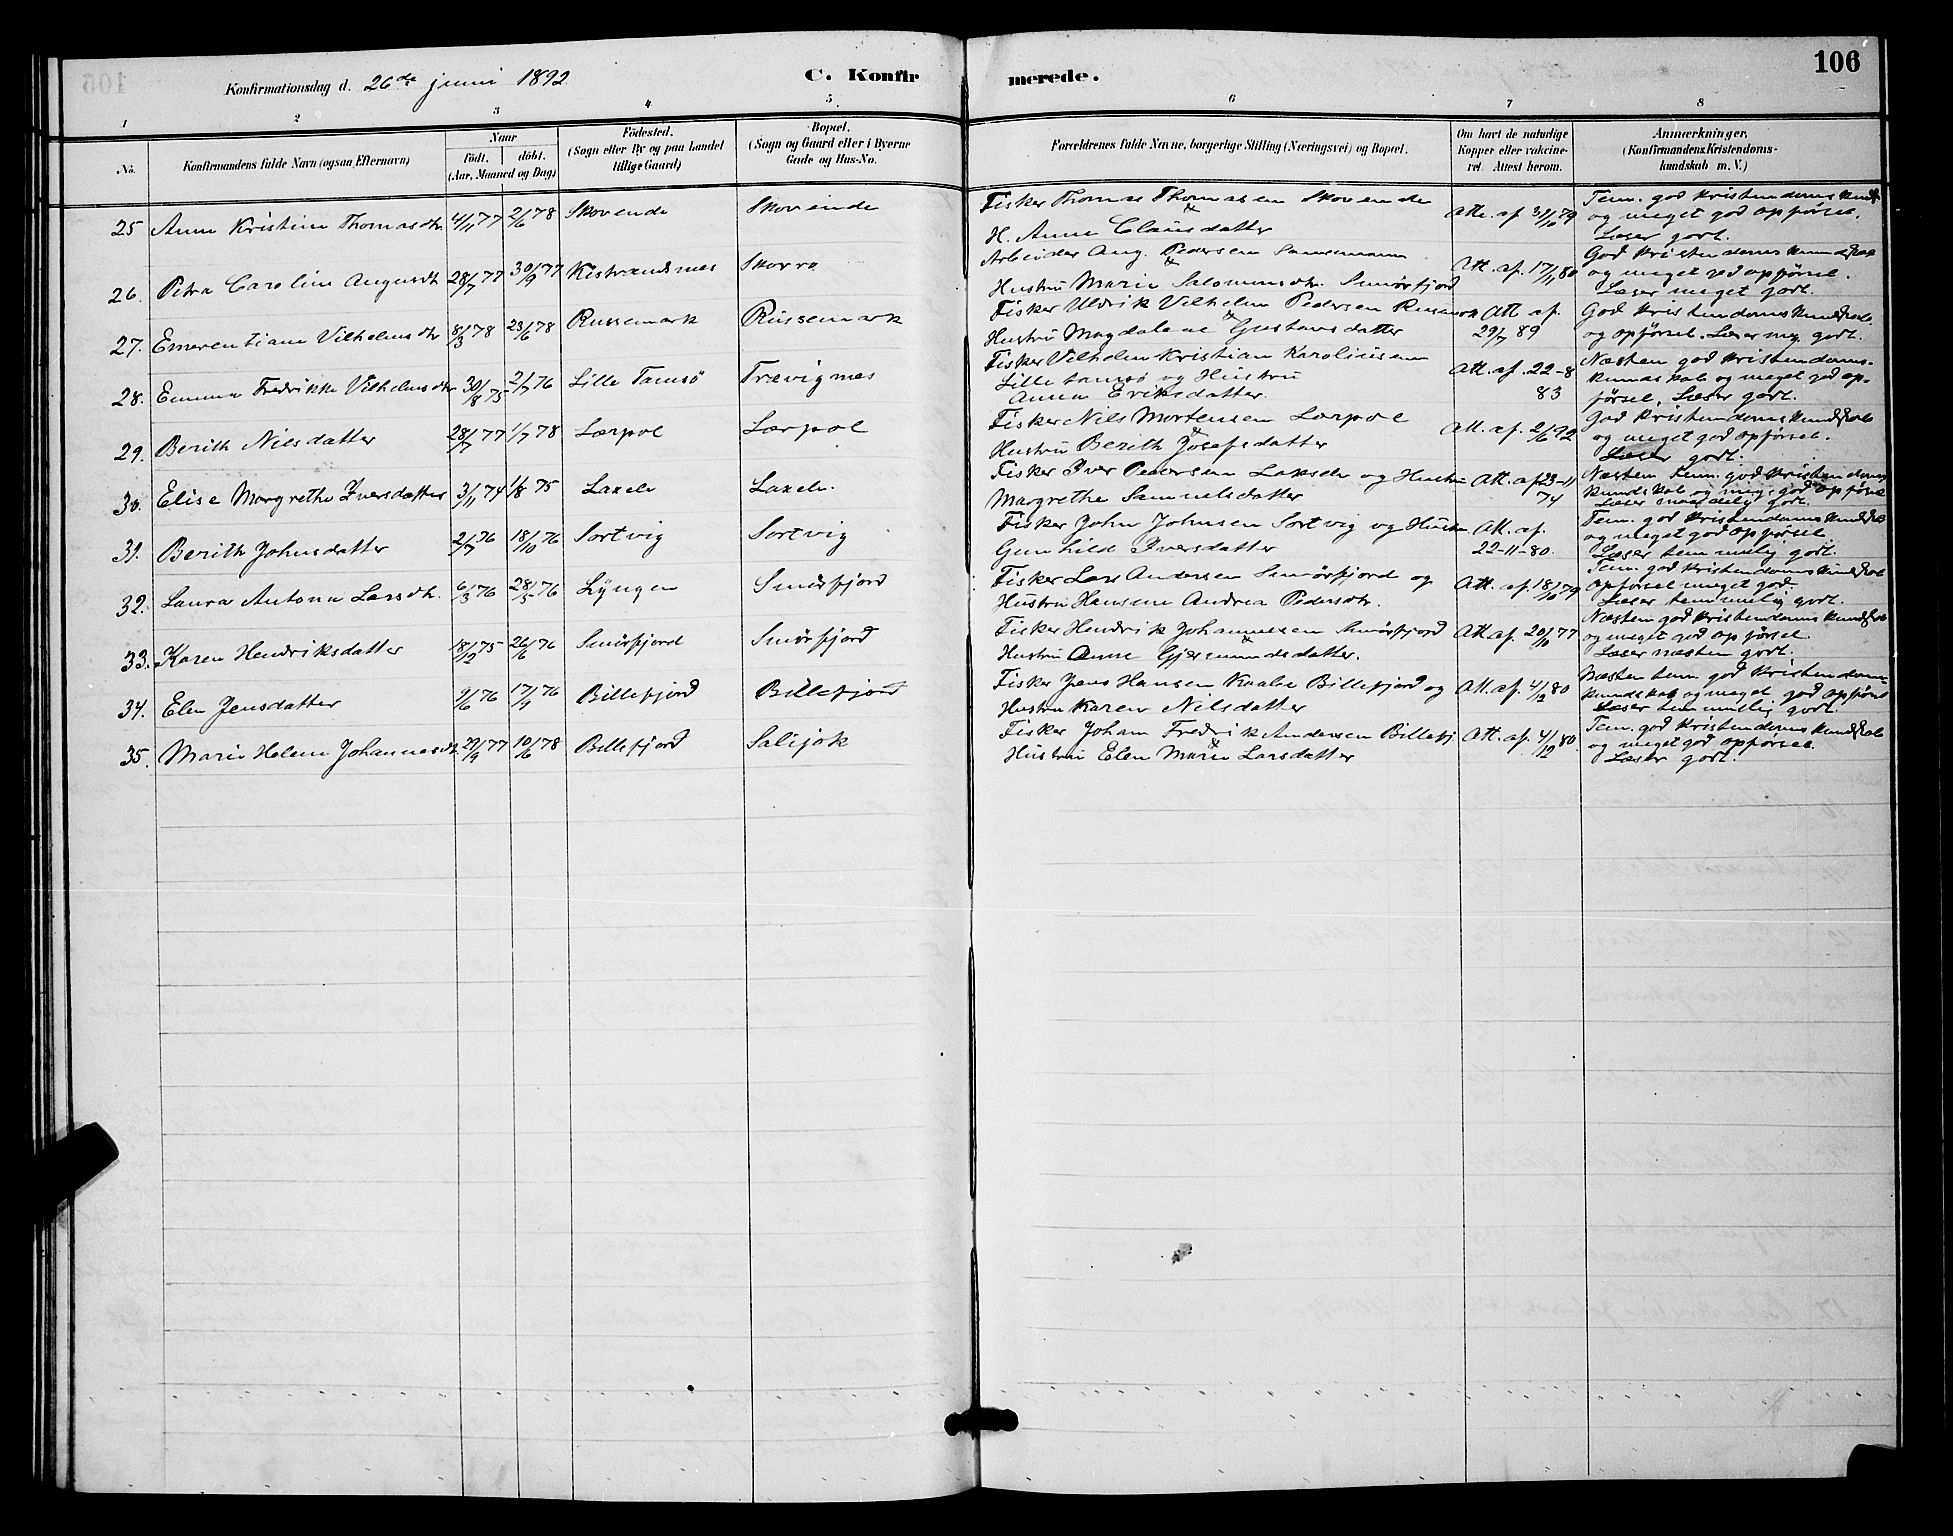 106
Konfirmationsdag d. 26de juni 1892
C. Konfirmerede.
1 2 3 4 5 6 7 8
No.
Konfirmandens fulde Navn (ogsaa Efternavn)
Naar
födt. döbt.
(Aar, Maaned og Dag)
Födested.
(Sogn eller By og paa Landet
tillige Gaard)
Bopæl.
(Sogn og Gaard eller i Byerne
Gade og Hus-No.
Forældrenes fulde Navne, borgerlige Stilling (Næringsvei) og Bopæl.
Om havt de naturlige
Kopper eller vakcine-
ret. Attest herom.
Anmærkninger.
(Konfirmandens Kristendoms-
kundskab m. V.)
25 Anne Kristine Thomasdtr. 4/11 77 2/6 78 Skovende Skovende Fisker Thomas Thomasen Skovende &
H. Anne Clausdatter
Att. af /10 79
Tem. god kristendomskundsk
og meget god opførsel.
Læser godt.
26. Petra Caroline Augusdt 28/7 77 30/9 77 Kistrandsnes Skorro Arbeider Aug. Pedersen &
Hustru Marie Salomonsdtr. Smörfjord
Att. af. 17/11 80
God kristendomskundskab
og meget god opførsel.
Læser meget godt.
27. Emerentiane Vilhelmsdtr 8/3 78 23/6 78 Russemark Russemark Fisker Uldrik Vilhelm Pedersen Russemark &
Hustru Magdalene Gustavsdatter
Att af.
29/7 89
God kristendomskundskab
og opførsel. Læser meg. godt.
28. Emma Fredrikke Vilhelmsdtr 30/8 75 2/7 76 Lille Tamsö Trævignes Fisker Vilhelm Kristian Karoliusen
Lille tamsø og Hustru
Anna Eriksdatter.
Att. af. 22-8
83
Næsten god kristendoms-
kundskab og meget god op-
førsel. Læser godt.
29. Berith Nilsdatter 28/7 77 1/7 78 Lærpol Lærpol Fisker Nils Mortensen Lærpol &
Hustru Berith Josefsdatter
Att. af. 2/6 92
God kristendomskundskab
og meget god opførsel.
Læser godt.
30. Elise Margrethe Iversdatter 3/11 74 1/8 75 Laxelv Laxelv. Fisker Iver Pedersen Lakselv og Hustru
Margrethe Samuelsdatter
Att. af 23-11
74
Næsten tem. god kristendoms
kundskab og meg. god opførsel
Læser maadelig godt.
31. Berith Johnsdatter 2/7 76 18/10 76 Sortvig Sortvig Fisker John Johnsen Sortvig og Hustru
Gunhild Iversdatter
Att. af.
22-11-80.
Tem. god kristendomskundskab
og meget god opførsel.
Læser temmelig godt.
32. Laura Antona Larsdtr. 6/3 76 28/5 76 Lyngen Smörfjord Fisker Lars Andersen Smörfjord og
Hustru Hansine Andrea Pedersdtr.
Att. af. 18/10 79
Tem. god kristendomskundskab
opførsel meget god
Læser temmelig godt.
33. Karen Hendriksdatter 18/12 75 26/6 76 Smörfjord Smörfjord Fisker Hendrik Johannesen Smörfjord &
Hustru Anne Gjermundsdatter.
Att af. 20/10 77
Næsten god kristendomskundskab
og meget god opførsel.
Læser næsten godt.
34. Elen Jensdatter 2/6 76 17/9 76 Billefjord Billefjord Fisker Jens Hansen Kaabe Billefjord og
Hustru Karen Nilsdatter
Att. af. 4/12 80
Næsten tem. god kristendom-
kundskab og meget god opførsel
Læser temmelig godt.
35. Marie Helene Johannesdtr. 27/9 77 10/6 78 Billefjord Salijok Fisker Johan Fredrik Andersen Billefj &
Hustru Elen Marie Larsdatter
Att. af. 4/12 80
Tem. god kristendomskundskab
og meget god opførsel.
Læser godt.